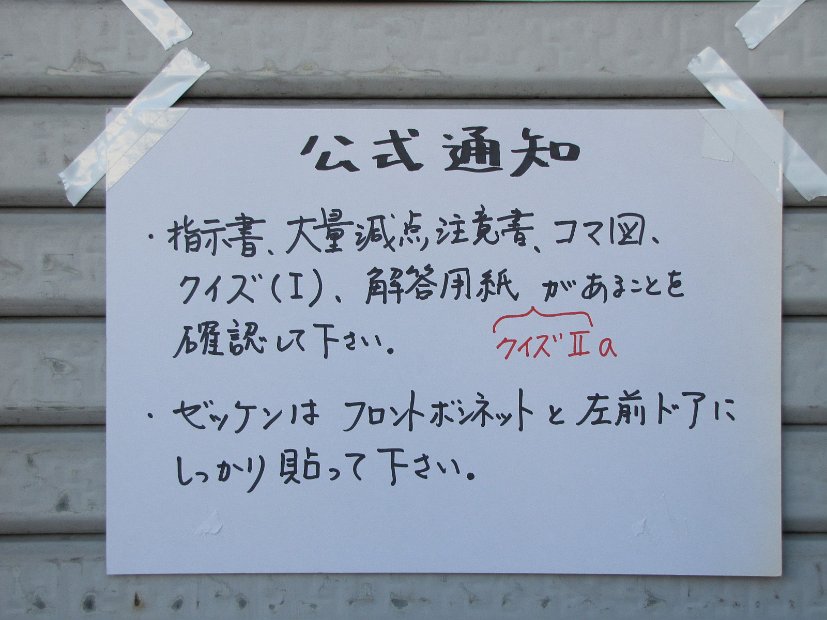 公式通知
・指示書、大量減点注意書、コマ図、
クイズ(I)、解答用紙 があることを
確認して下さい。
クイズⅡa
・ゼッケンは フロントボンネットと 左前ドアに
しっかり貼って下さい。